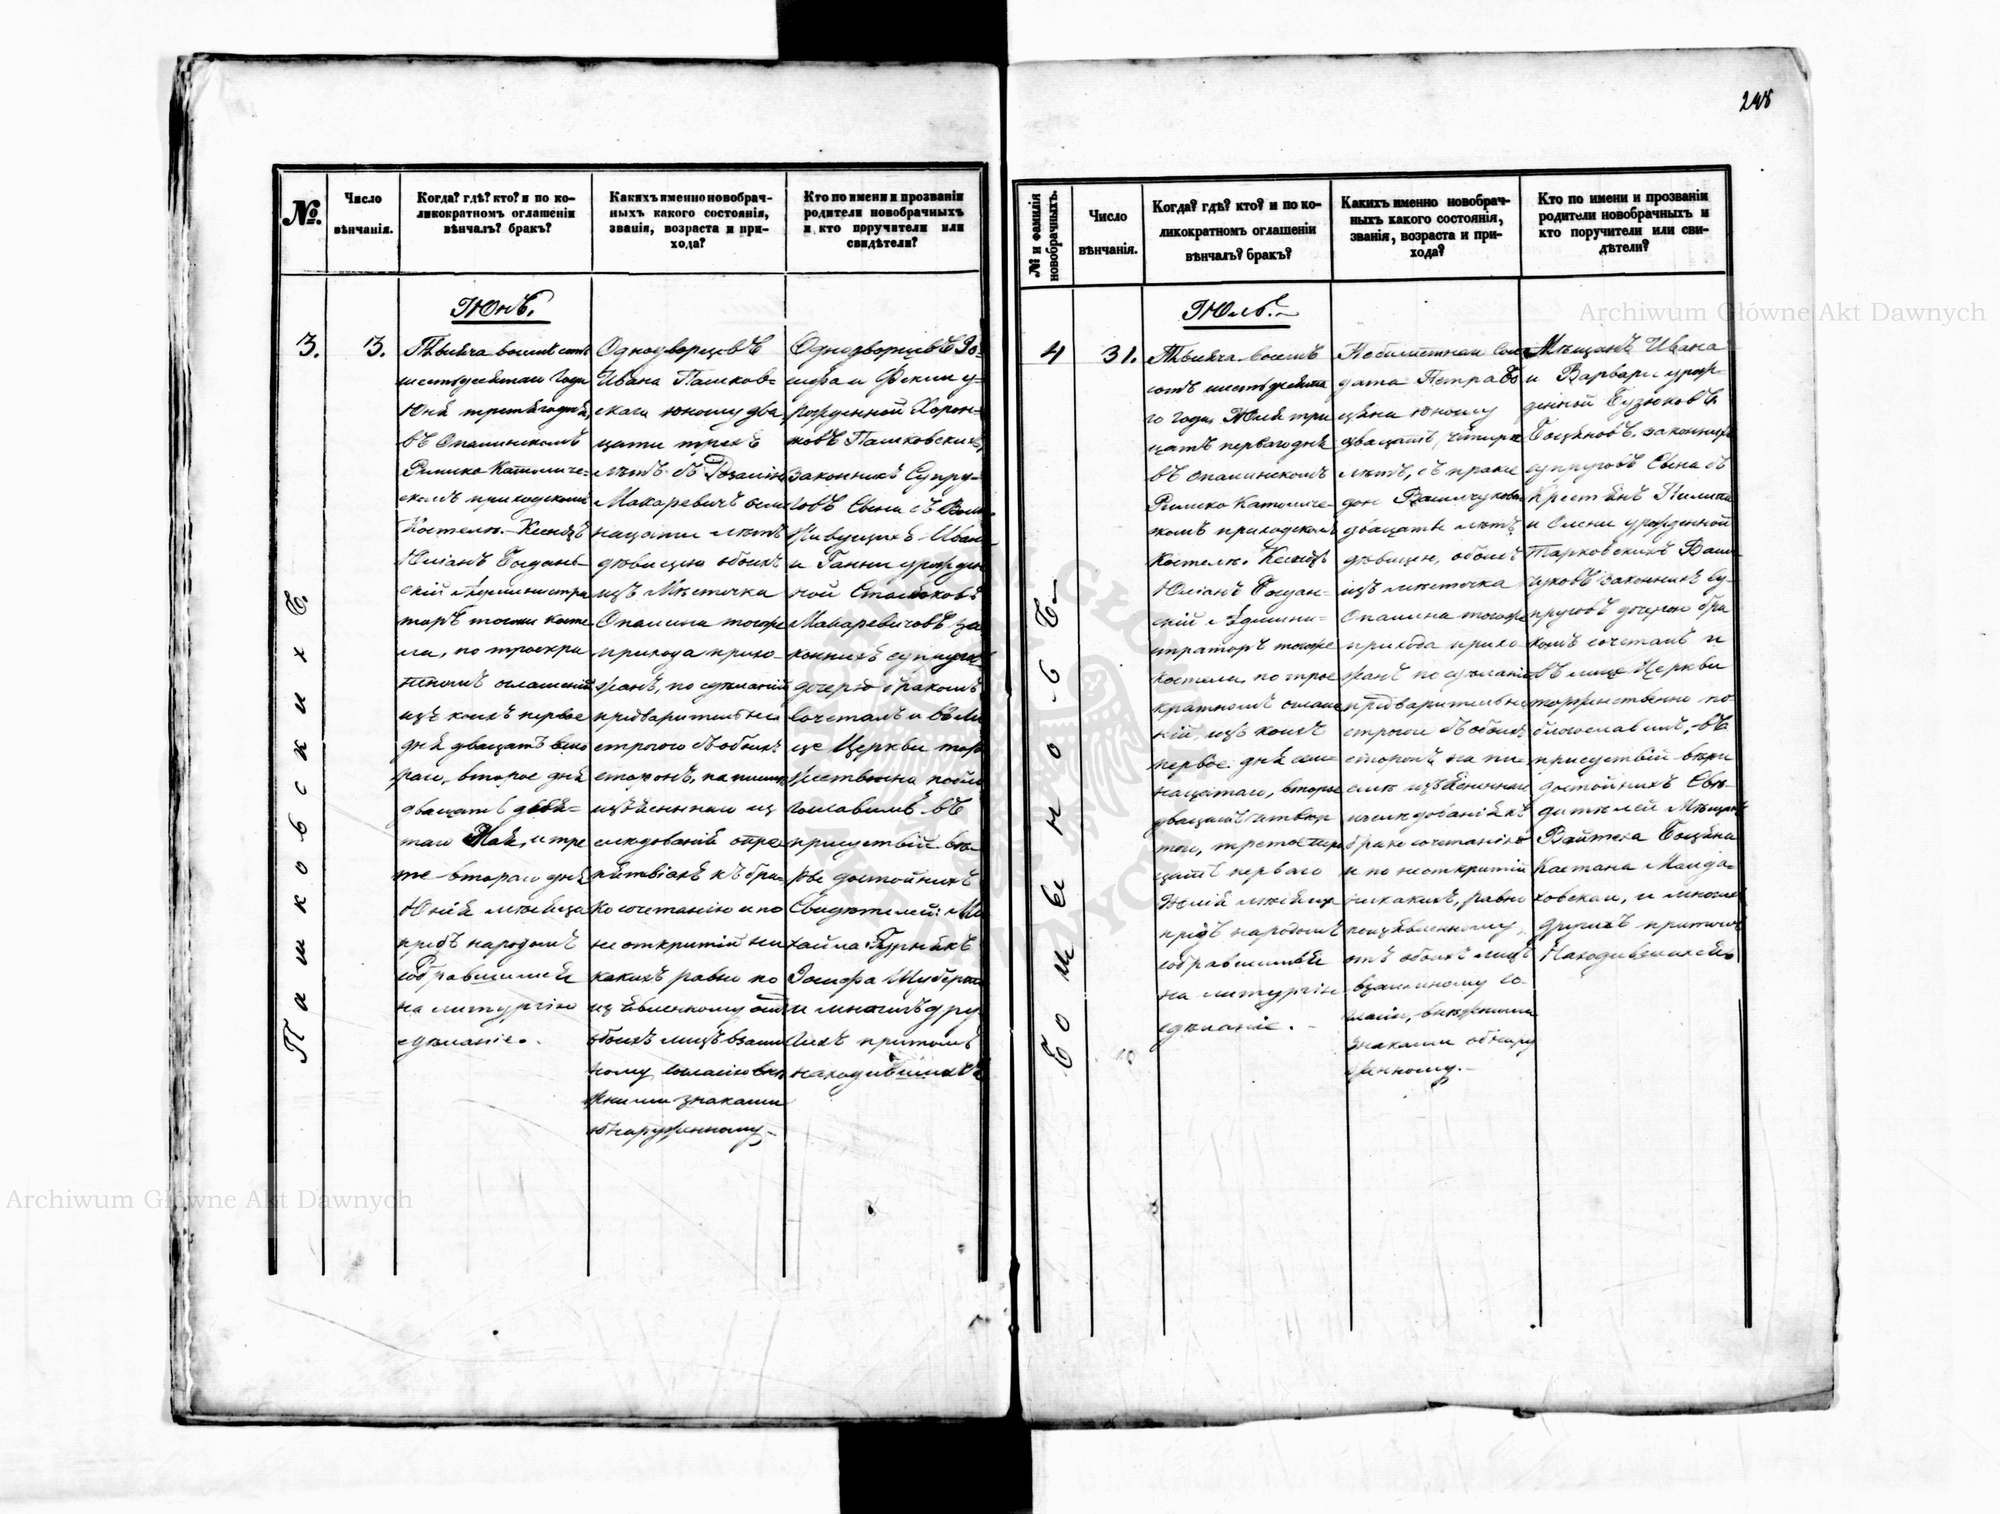 248
№.
Число
вѣнчанія.
Когда? гдѣ? кто? и по ко-
ликократномъ оглашеніи
вѣнчалъ? бракъ?
Какихъ именно новобрач-
ныхъ какого состоянія,
званія, возраста и при-
хода?
Кто по имени и прозванію
родители новобрачныхъ
и кто поручители или
свидѣтели?
3.
Пашковскихъ.
3.
Юнь.
Тысяча восемь сотъ
шестьдесятаго года
Юня третьяго дня,
въ Опалинскомъ
Римско Католиче-
скомъ приходскомъ
Костелѣ. Ксендзъ
Юліанъ Богдан-
скій Администра
торъ тогоже косте
ла, по троекра
тномъ оглашеніи
изъ коихъ первое
дня двадцать вто
раго, второе дня
двадцать девя-
таго Мая, и тре
тье втораго дня
Юнія мѣсяца
предъ народомъ
собравшимся
на литургію
сдѣланіе.
Однодворцевъ
Ивана Пашков-
скаго юношу два
цати трехъ
лѣтъ съ Розаліею
Макаревичъ осм
надцати лѣтъ
дѣвицею обоихъ
изъ Мѣстечка
Опалина тогоже
прихода прихо-
жанъ, по сдѣланій
предварительно
строгого съ обоихъ
сторонъ, на письмѣ
изъясненнаго из
слѣдованій опре
пятвіяхъ къ бра-
ко сочетанію и по
не открытій ни
какихъ равно по
изъявленному отъ
обоихъ лицъ взаим
ному согласію внѣ
жними знаками
обнаруженному
Однодворцевъ Іо-
сифа и Феклы у-
рожденной Хорон-
ковъ Пашковскихъ,
законныхъ Супру-
говъ Сына съ
Живущихъ Ивана
и Ганны урожден
ной Столбоковъ
Макаревичовъ за
конныхъ супруговъ
дочерю бракомъ
сочеталъ и въ ли
це Церкви тор
жественно побла
гославилъ въ
присутствій вѣ-
ры достойныхъ
Свидѣтелей: Ми
хайла
Іосифа Шуберта
и многихъ дру
гихъ притомъ
находившихся
№ и фамилія
новобрачныхъ.
Число
вѣнчанія.
Когда? гдѣ? кто? и по ко-
ликократномъ оглашеніи
вѣнчалъ? бракъ?
Какихъ именно новобрач-
ныхъ какого состоянія,
званія, возраста и при-
хода?
Кто по имени и прозванію
родители новобрачныхъ и
кто поручители или сви-
дѣтели?
4
31.
Юль.
Тысяча восемь
сотъ шестьдесята
го года, Юля три
цать перваго дня
въ Опалинскомъ
Римско Католиче
скомъ приходскомъ
Костелѣ. Ксендзъ
Юліанъ Богдан-
скій Админи-
страторъ тогоже
костела, по трое
кратномъ оглаше
ній, изъ коихъ
первое дня сем
надцатаго, второе
двадцать четвер
таго, третое три
цать перваго
Юлія мѣсяца
предъ народомъ
собравшимся
на литургію
сдѣланіе.
сол
дата Петра Бо
цяна юношу
двадцать, четыре
лѣтъ, съ
двадцать лѣтъ
дѣвицею, обоихъ
изъ мѣстечка
Опалина тогоже
прихода прихо
жанъ по сдѣланію
предварительно
строгого съ обоихъ
сторонъ на пи
смѣ изъясненнаго
изслѣдованія къ
бракосочетанію
и по неоткрытій
никакихъ, равно
поизъявленному,
отъ обоихъ лицъ
взаимному со-
гласію, внѣжними
знаками обнару
женному.
Мѣщанъ Ивана
и Варвары урож-
денной
Боцяновъ, законныхъ
супруговъ Сына съ
Крестьянъ
и Олены урожденной
Тарковскихъ
законныхъ Су-
пруговъ дочерею бра
комъ сочеталъ и
въ лице Церкви
торжественно по-
благославилъ, въ
присутствій вѣры
достойныхъ Сви-
дѣтелей Мѣщанъ
Войтеха Боцяна
и многихъ
другихъ притомъ
Находившихся
Archiwum Główne Akt Dawnych
Archiwum Główne Akt Dawnych